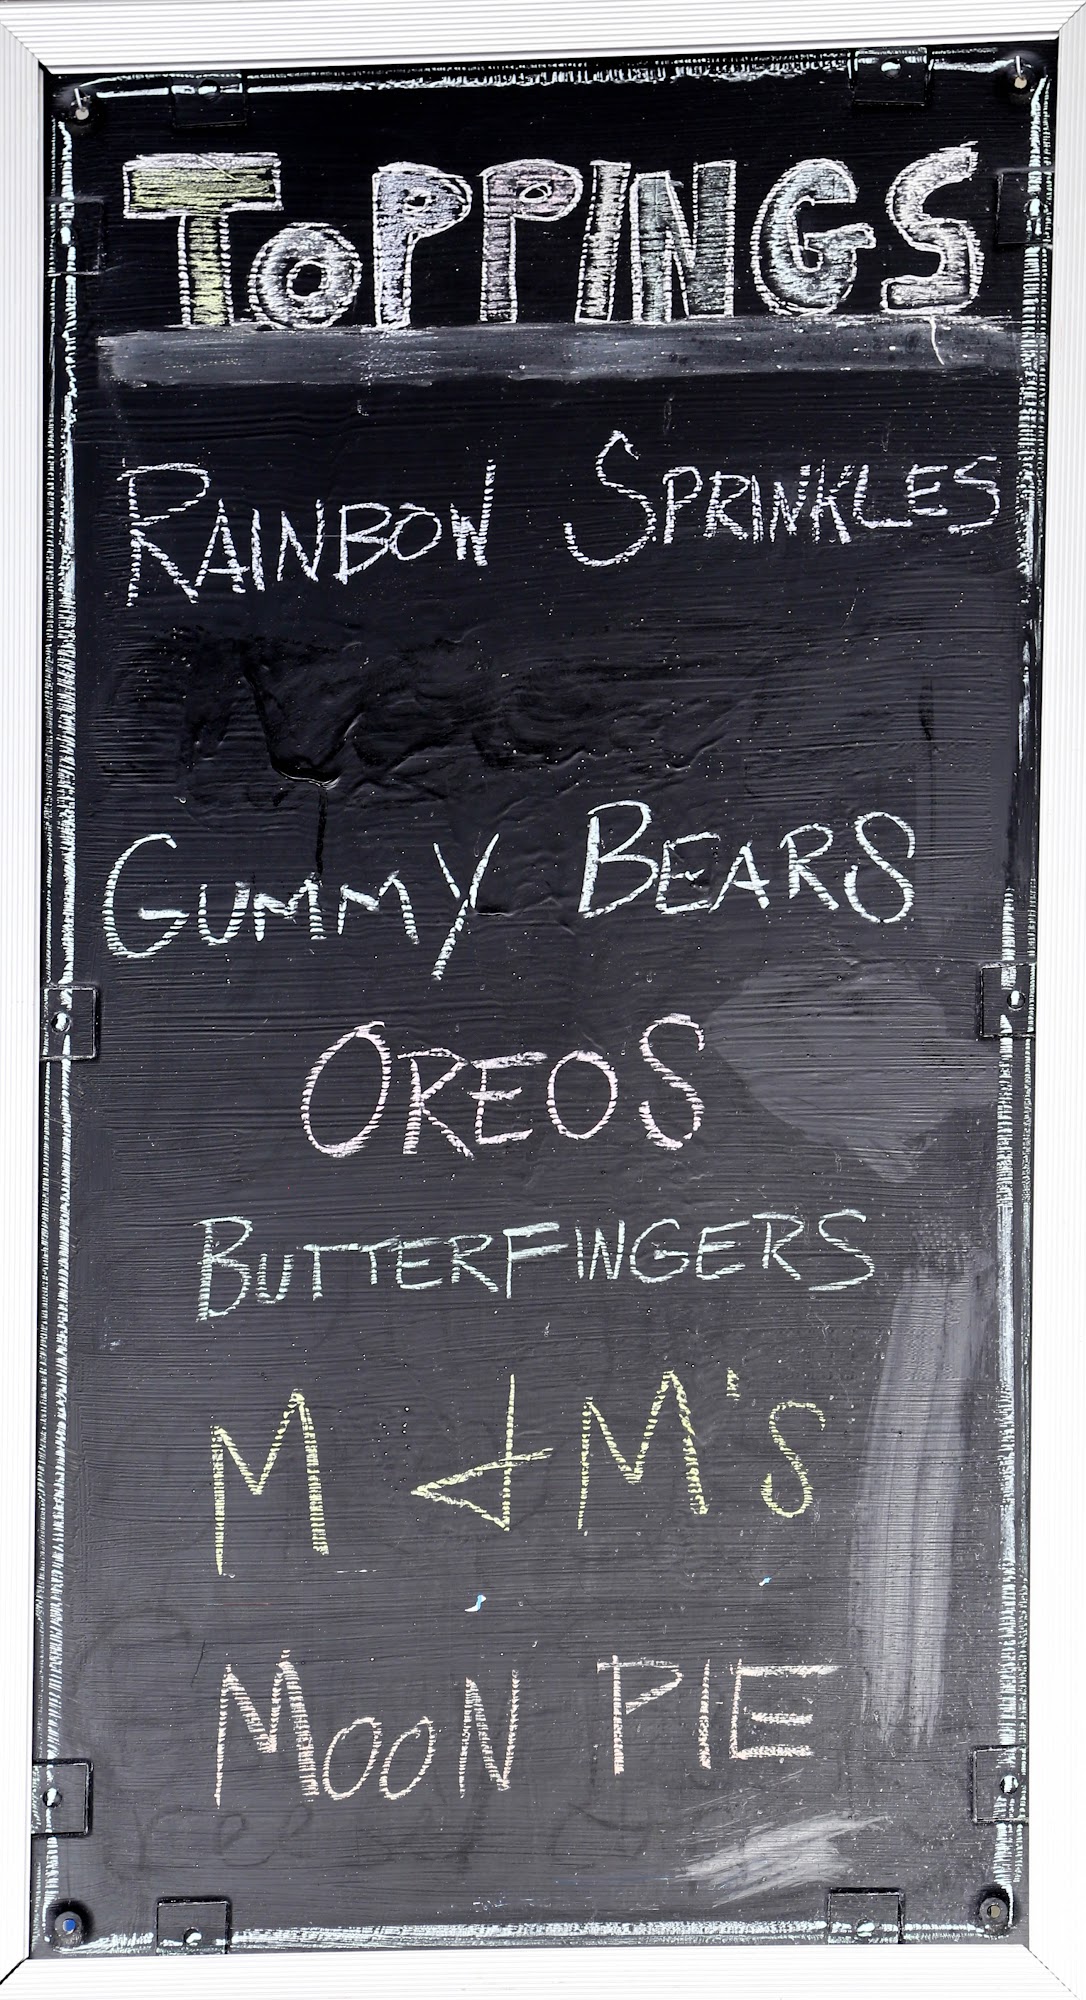 TOPPINGS
RAINBOW SPRINKLES
GUMMY BEARS
OREOS
BUTTERFINGERS
M & M'S
MOON PIE